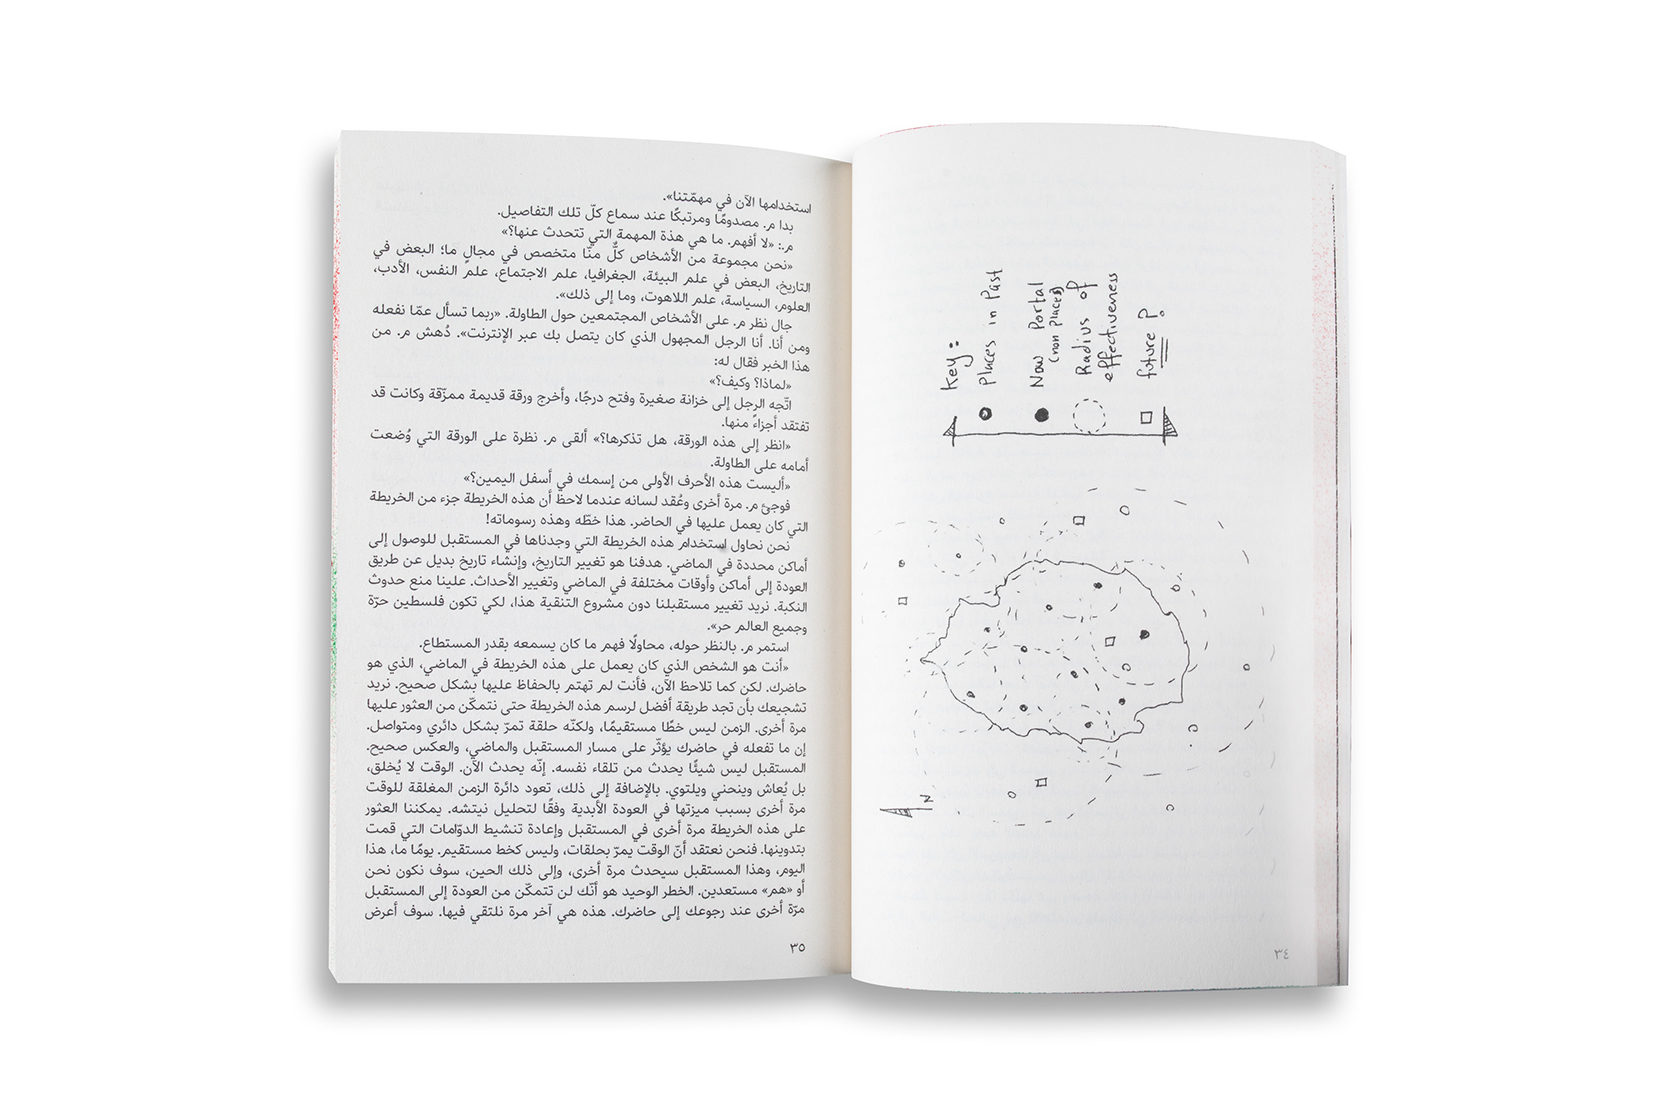 Key:
Places in Past
Now Portal
(non places)
Radius of
effectiveness
future ?
N
٣٤
استخدامها الآن في مهمّتنا».
بدا م. مصدومًا ومرتبكًا عند سماع كلّ تلك التفاصيل.
م.: «لا أفهم. ما هي هذة المهمة التي تتحدث عنها؟»
«نحن مجموعة من الأشخاص كلٌّ منّا متخصص في مجالٍ ما؛ البعض في
التاريخ، البعض في علم البيئة، الجغرافيا، علم الاجتماع، علم النفس، الأدب،
العلوم، السياسة، علم اللاهوت، وما إلى ذلك».
جال نظر م. على الأشخاص المجتمعين حول الطاولة. «ربما تسأل عمّا نفعله
ومن أنا. أنا الرجل المجهول الذي كان يتصل بك عبر الإنترنت». دُهش م. من
هذا الخبر فقال له:
«لماذا؟ وكيف؟»
اتّجه الرجل إلى خزانة صغيرة وفتح درجًا، وأخرج ورقة قديمة ممزّقة وكانت قد
تفتقد أجزاءً منها.
«انظر إلى هذه الورقة، هل تذكرها؟» ألقى م. نظرة على الورقة التي وُضعت
أمامه على الطاولة.
«أليست هذه الأحرف الأولى من إسمك في أسفل اليمين؟»
فوجئ م. مرة أخرى وعُقد لسانه عندما لاحظ أن هذه الخريطة جزء من الخريطة
التي كان يعمل عليها في الحاضر. هذا خطّه وهذه رسوماته!
نحن نحاول استخدام هذه الخريطة التي وجدناها في المستقبل للوصول إلى
أماكن محددة في الماضي. هدفنا هو تغيير التاريخ، وإنشاء تاريخ بديل عن طريق
العودة إلى أماكن وأوقات مختلفة في الماضي وتغيير الأحداث. علينا منع حدوث
النكبة. نريد تغيير مستقبلنا دون مشروع التنقية هذا، لكي تكون فلسطين حرّة
وجميع العالم حر».
استمر م. بالنظر حوله، محاولًا فهم ما كان يسمعه بقدر المستطاع.
«أنت هو الشخص الذي كان يعمل على هذه الخريطة في الماضي، الذي هو
حاضرك. لكن كما تلاحظ الآن، فأنت لم تهتم بالحفاظ عليها بشكل صحيح. نريد
تشجيعك بأن تجد طريقة أفضل لرسم هذه الخريطة حتى نتمكّن من العثور عليها
مرة أخرى. الزمن ليس خطًا مستقيمًا، ولكنّه حلقة تمرّ بشكل دائري ومتواصل.
إن ما تفعله في حاضرك يؤثّر على مسار المستقبل والماضي، والعكس صحيح.
المستقبل ليس شيئًا يحدث من تلقاء نفسه. إنّه يحدث الآن. الوقت لا يُخلق،
بل يُعاش وينحني ويلتوي. بالإضافة إلى ذلك، تعود دائرة الزمن المغلقة للوقت
مرة أخرى بسبب ميزتها في العودة الأبدية وفقًا لتحليل نيتشه. يمكننا العثور
على هذه الخريطة مرة أخرى في المستقبل وإعادة تنشيط الدوّامات التي قمت
بتدوينها. فنحن نعتقد أنّ الوقت يمرّ بحلقات، وليس كخط مستقيم. يومًا ما، هذا
اليوم، وهذا المستقبل سيحدث مرة أخرى، وإلى ذلك الحين، سوف نكون نحن
أو «هم» مستعدين. الخطر الوحيد هو أنّك لن تتمكّن من العودة إلى المستقبل
مرّة أخرى عند رجوعك إلى حاضرك. هذه هي آخر مرة نلتقي فيها. سوف أعرض
٣٥